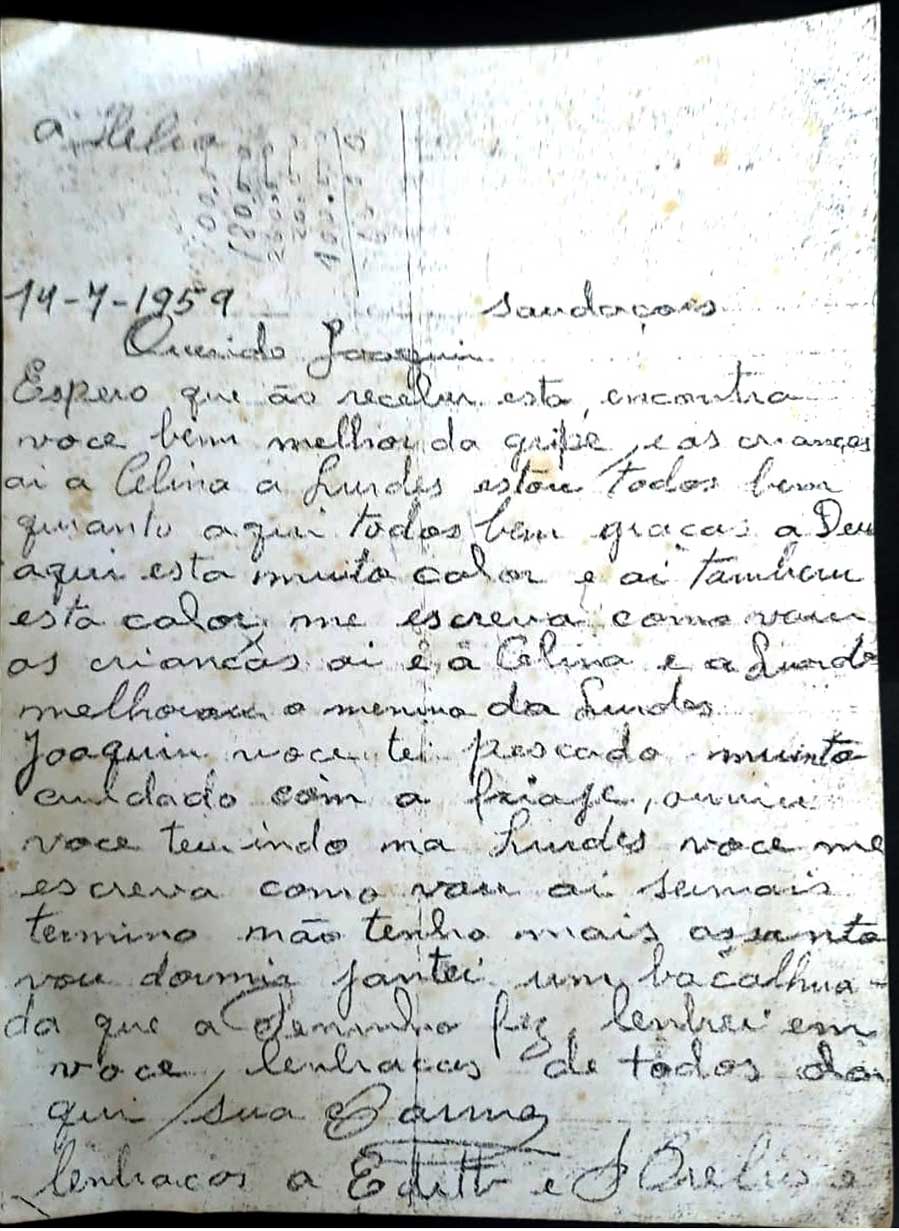 a Helio
14-7-1959 saudaçois
Querido Joaquin
Espero que ão receber esta, encontra
voce bem melhor da gripe, e as crianças
ai a Celina a Lurdes estou todos bem
quanto aqui todos bem graças a Deu
aqui esta muito calor e ai tambem
esta calor, me escreva como vam
as criancas ai ê â Celina e a Lurde
melhorou o menino da Lurdes
Joaquin voce tei pescado munto
cuidado com a friaje,
voce indo na Lurdes voce me
escreva como vau ai semais
termino não tenho mais asunto
vou dormir jantei um bacalhua-
da que a fiz, lenbrei em
voce, lenbracas de todos da
qui sua
lenbracas a Edith e